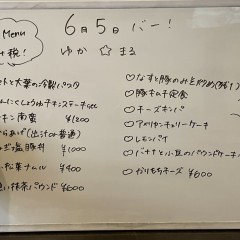 Menu
税!
6月5日バー!
ゆか☆まる
トと大葉の冷製パスタ
んにくしょうゆチキンステーキ
キン南蛮 ¥1200
塩豚丼 ¥1000
松菜ナムル ¥900
抹茶パウンド ¥600
○なすと豚のみそ炒め
○豚キムチ定食
○チーズキンパ
○アメリカンチェリーケーキ
○レモンパイ
○バナナと小豆のパウンドケーキ
○かりもちチーズ ¥600